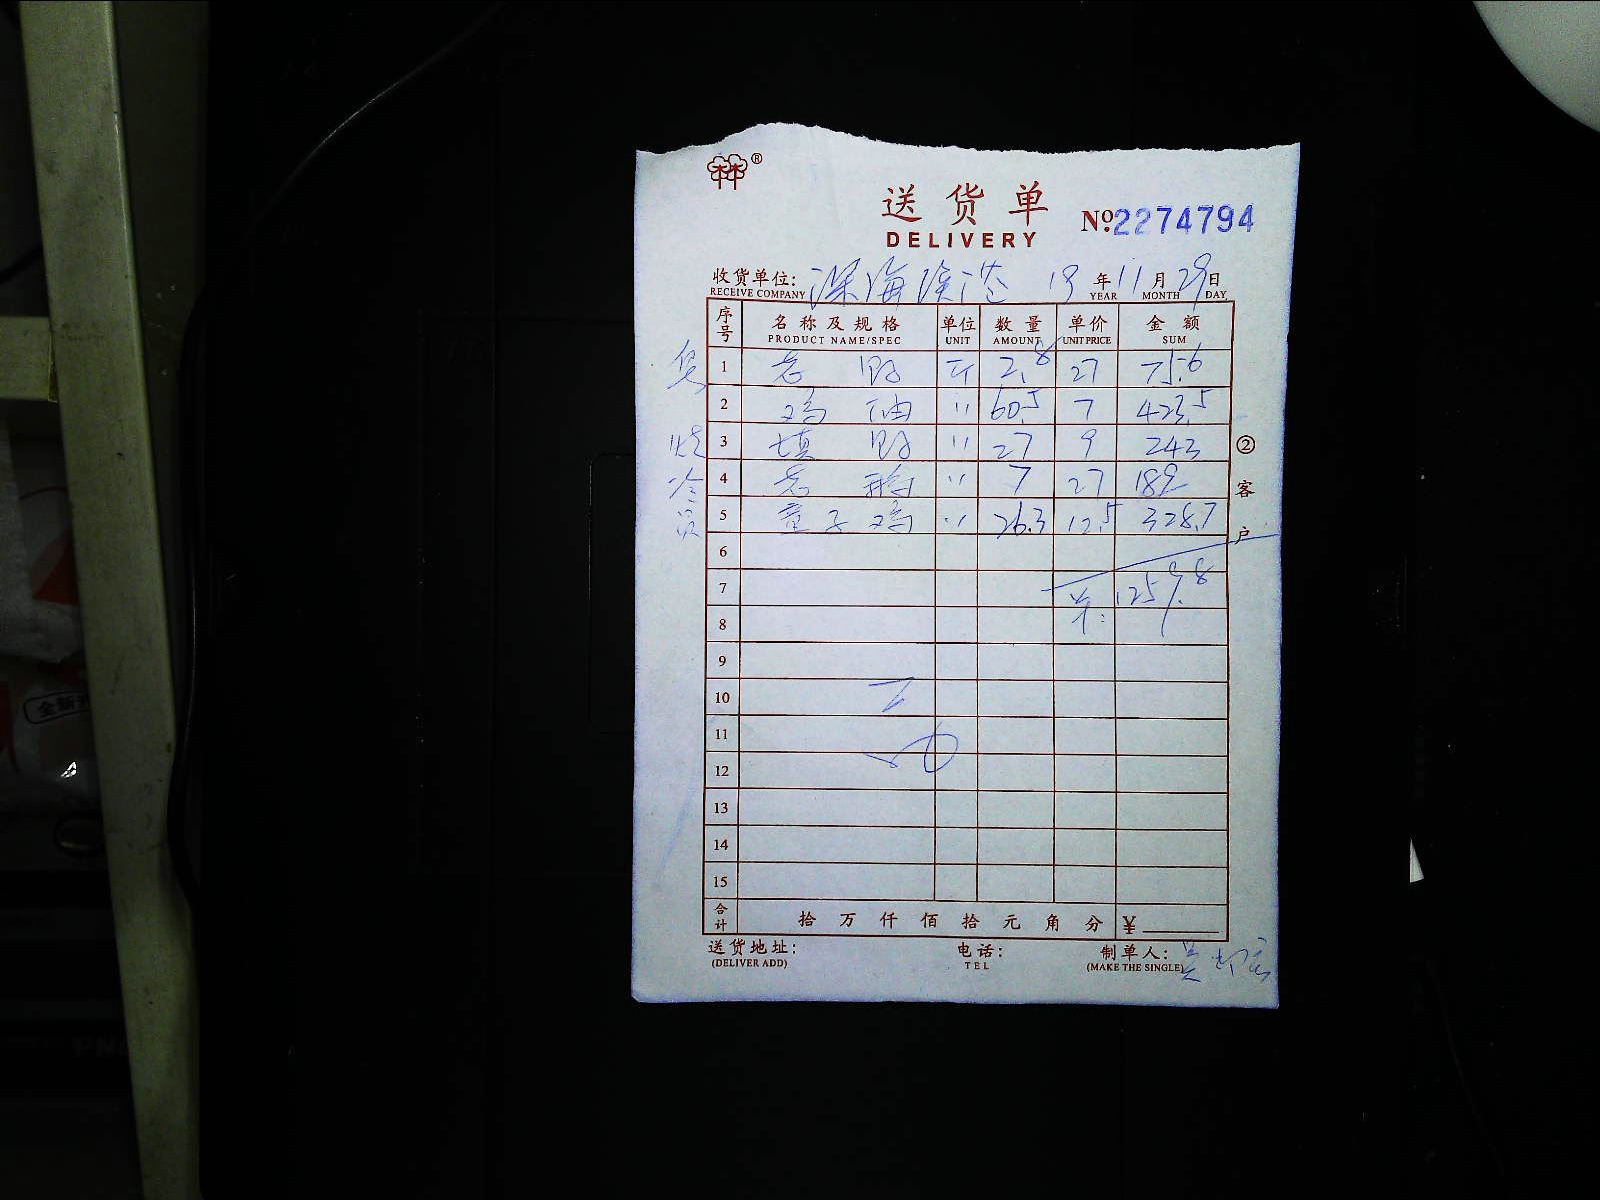 ®
送货单
DELIVERY
№ 2274794
收货单位: 深海渔港 19 年 11 月 29 日
RECEIVE COMPANY YEAR MONTH DAY
序号 名称及规格 单位 数量 单价 金额
PRODUCT NAME/SPEC UNIT AMOUNT UNIT PRICE SUM
1 老 鸭 斤 2.8 27 75.6
2 鸡 油 〃 60.5 7 423.5
3 填 鸭 〃 27 9 243
4 老 鸽 〃 7 27 189
5 童子鸡 〃 26.3 12.5 328.7
6
7 1259.8
8
9
10
11
12
13
14
15
合计 拾 万 仟 佰 拾 元 角 分 ¥
送货地址: 电话: 制单人:
(DELIVER ADD) TEL (MAKE THE SINGLE)
②客户
全新